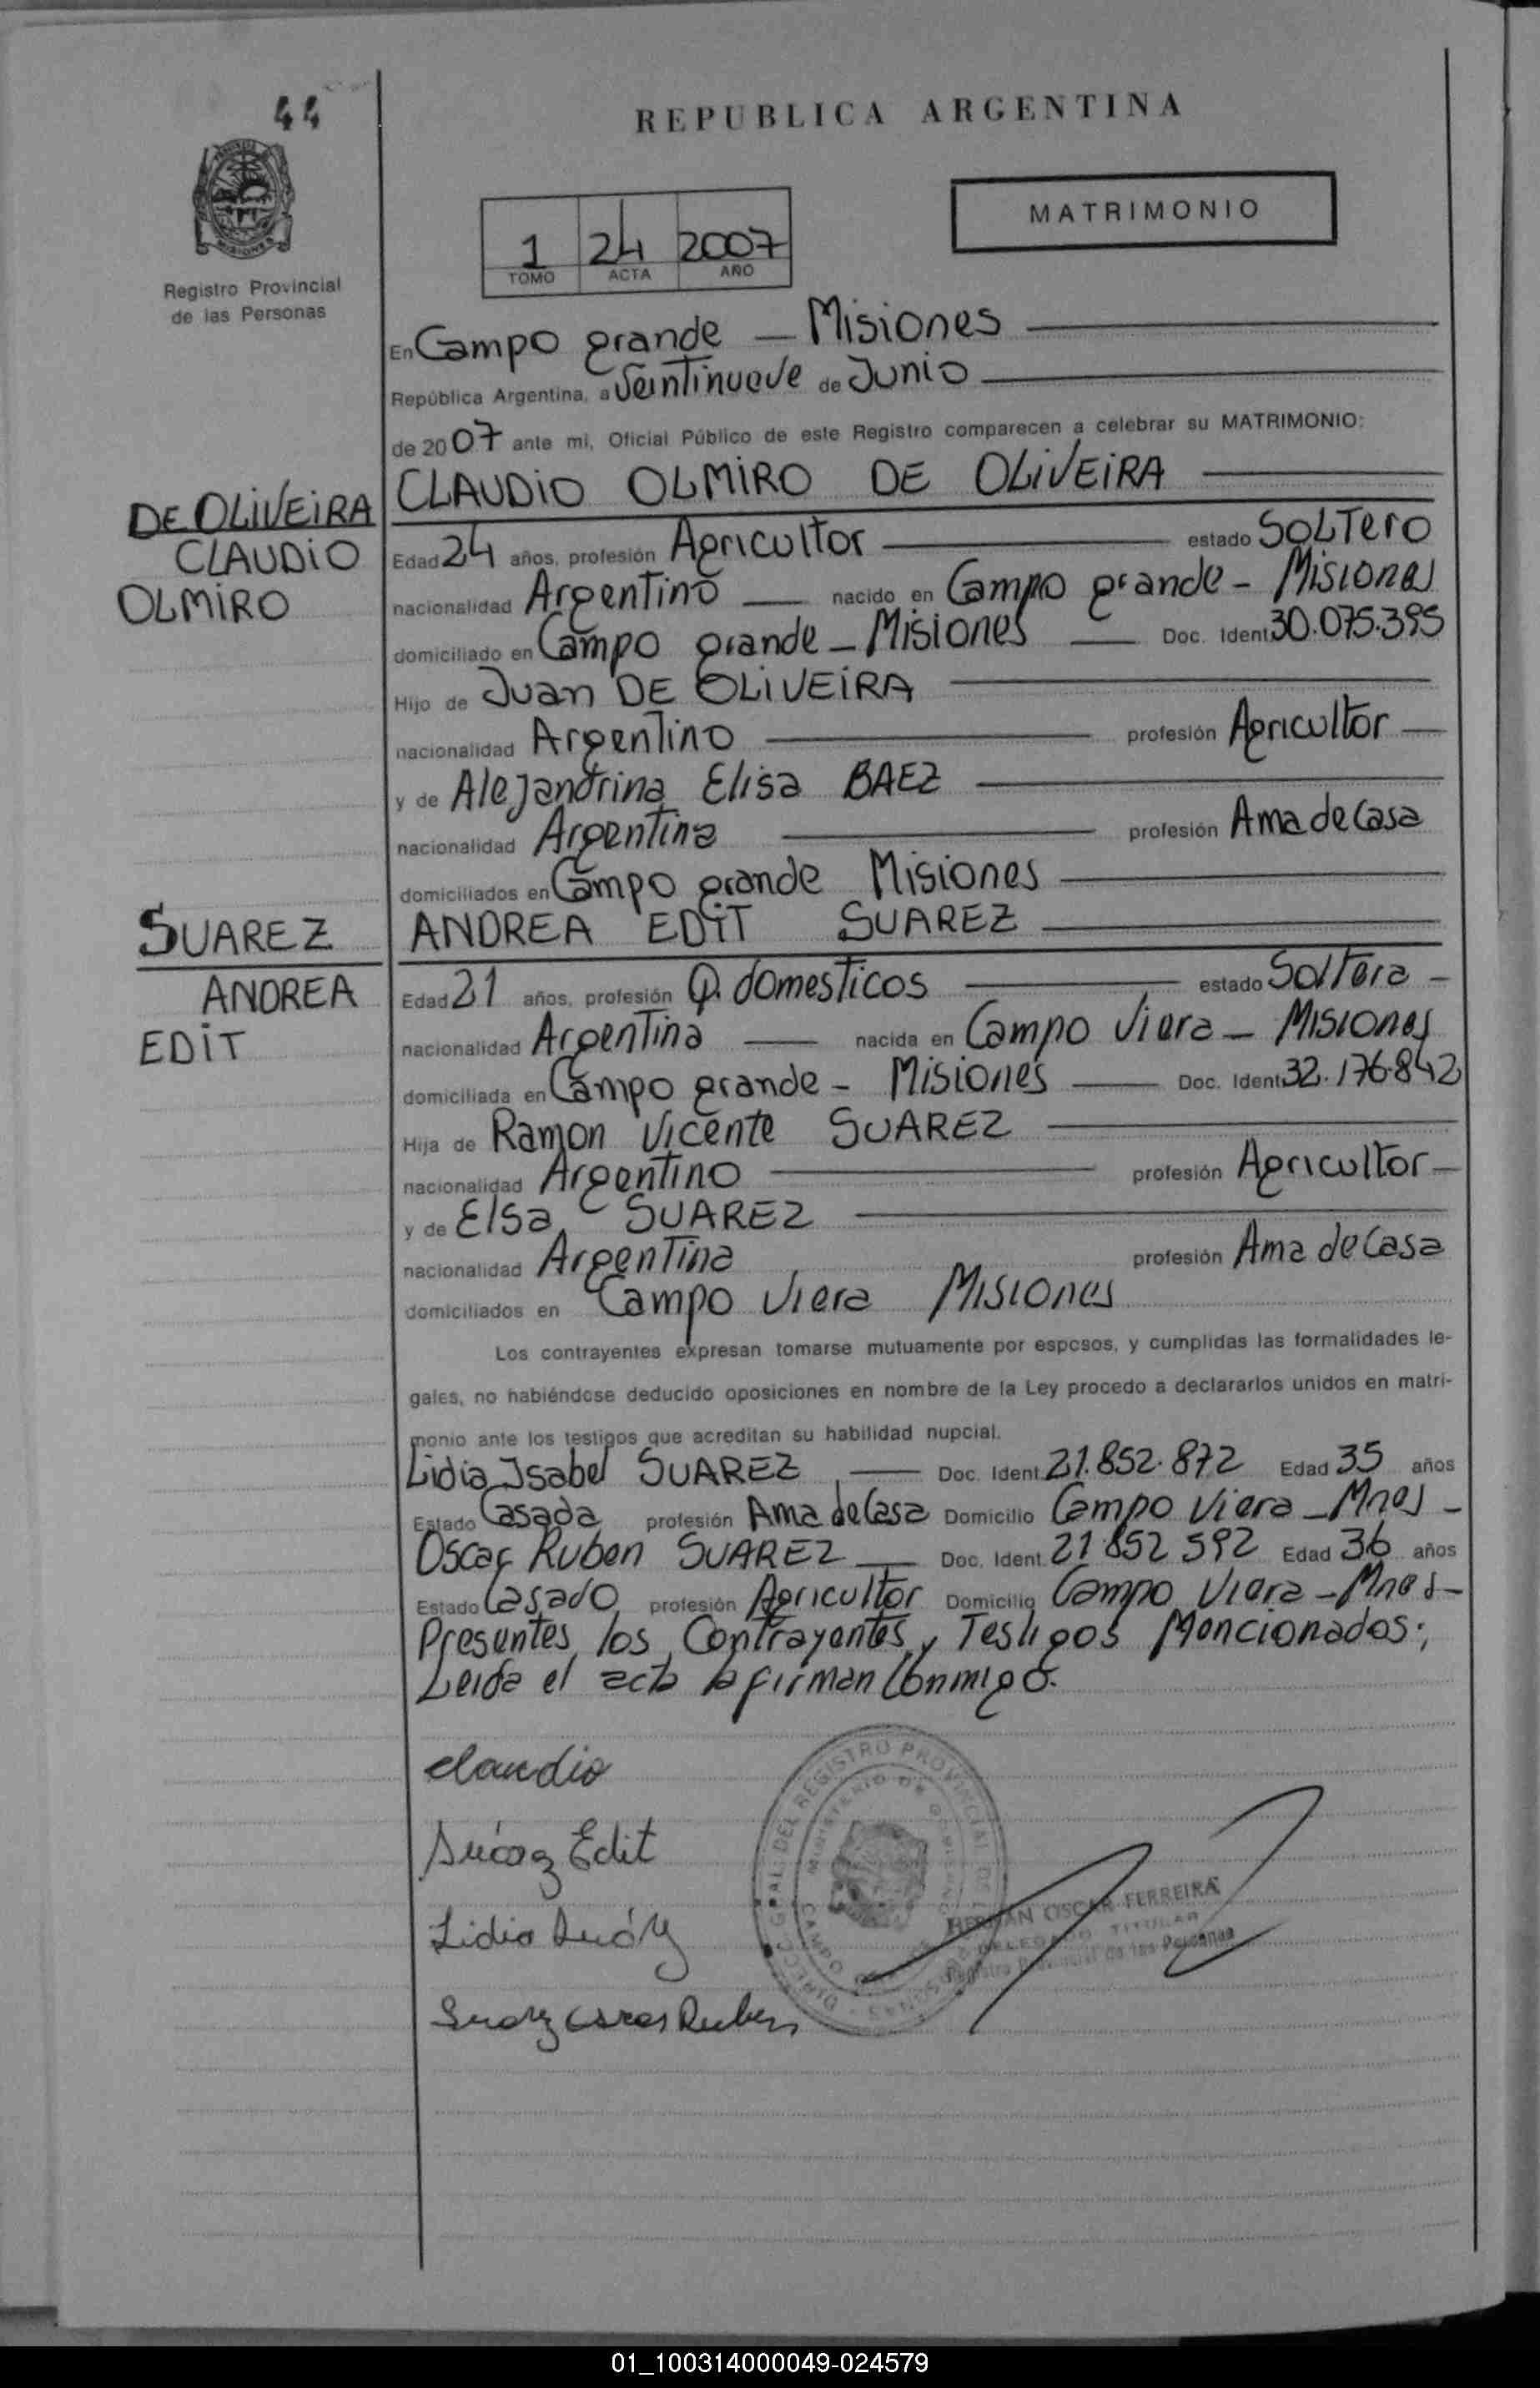 44
REPUBLICA ARGENTINA
MISIONES
Registro Provincial
de las Personas
1 24 2007
TOMO ACTA AÑO
MATRIMONIO
En Campo grande — Misiones
República Argentina, a Veintinueve de Junio
de 2007 ante mi, Oficial Público de este Registro comparecen a celebrar su MATRIMONIO:
DE OLIVEIRA
CLAUDIO
OLMIRO
CLAUDIO OLMIRO DE OLIVEIRA
Edad 24 años, profesión Agricultor estado SOLTERO
nacionalidad Argentino — nacido en Campo grande - Misiones
domiciliado en Campo grande - Misiones — Doc. Ident. 30.075.395
Hijo de Juan DE OLIVEIRA
nacionalidad Argentino profesión Agricultor
y de Alejandrina Elisa BAEZ
nacionalidad Argentina profesión Ama de Casa
domiciliados en Campo grande Misiones
SUAREZ
ANDREA
EDIT
ANDREA EDIT SUAREZ
Edad 21 años, profesión Q. domesticos estado Soltera -
nacionalidad Argentina — nacida en Campo Viera - Misiones
domiciliada en Campo grande - Misiones — Doc. Ident. 32.176.842
Hija de Ramon Vicente SUAREZ
nacionalidad Argentino profesión Agricultor
y de Elsa SUAREZ
nacionalidad Argentina profesión Ama de Casa
domiciliados en Campo Viera Misiones
Los contrayentes expresan tomarse mutuamente por esposos, y cumplidas las formalidades le-
gales, no habiéndose deducido oposiciones en nombre de la Ley procedo a declararlos unidos en matri-
monio ante los testigos que acreditan su habilidad nupcial.
Lidia Isabel SUAREZ — Doc. Ident. 21.852.872 Edad 35 años
Estado Casada profesión Ama de Casa Domicilio Campo Viera - Mnes -
Oscar Ruben SUAREZ — Doc. Ident. 21 852 592 Edad 36 años
Estado Casado profesión Agricultor Domicilio Campo Viera - Mnes -
Presentes los Contrayentes y Testigos Mencionados;
Leida el acta la firman Conmigo.
claudio
Suárez Edit
Lidia Suárez
Suarez Oscar Ruben
DIRECC. GRAL. DEL REGISTRO PROVINCIAL DE
MINISTERIO DE GOBIERNO
CAMPO
HERNAN OSCAR FERREIRA
DELEGADO TITULAR
Registro Provincial de las Personas
01_100314000049-024579